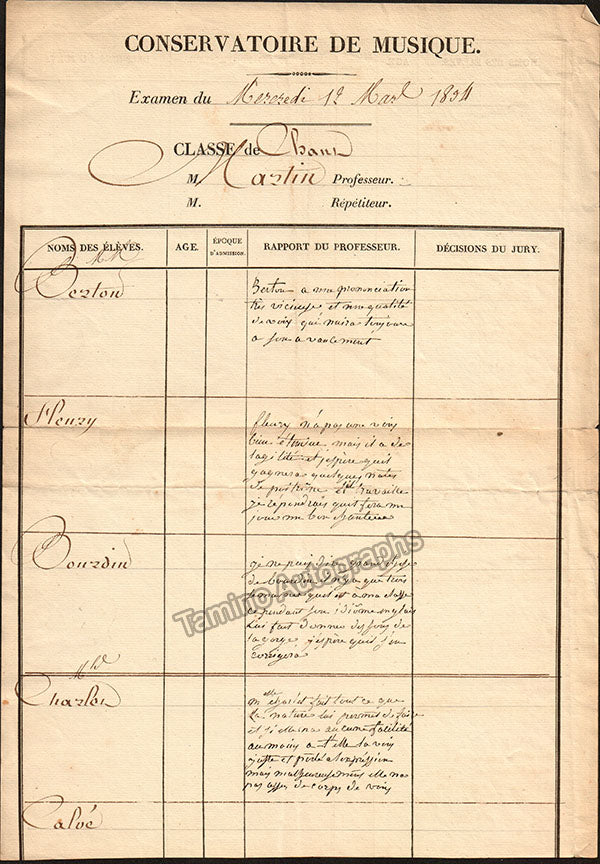 CONSERVATOIRE DE MUSIQUE.
Examen du Mercredi 12 Mars 1834
CLASSE de Chant
M. Martin Professeur.
M. Répétiteur.
NOMS DES ÉLÈVES. AGE. ÉPOQUE D'ADMISSION. RAPPORT DU PROFESSEUR. DÉCISIONS DU JURY.
Berton
Berton a une prononciation
très vicieuse et une qualité
de voix qui nuira toujours
a son avancement
Fleury
fleury n'a pas une voix
bien etendue mais il a de
l'agilité et j'espère qu'il
gagnera quelques notes
de poitrine et travaille
je repondrais qu'il fera un
jour un bon chanteur
Bourdin
je ne puis dire grand chose
de bourdin il n'y a que trois
semaines qu'il est a ma classe
cependant son idiôme anglais
lui fait donner des sons de
la gorge j'espère qu'il s'en
corrigera
Mlle
Charlot
mlle charlot fait tout ce que
la nature lui permet de faire
et si elle n'a aucune facilité
au moins a t'elle la voix
juste et porté a l'expression
mais malheureusement elle n'a
pas assez de corps de voix
Calvé
Tamino Autographs